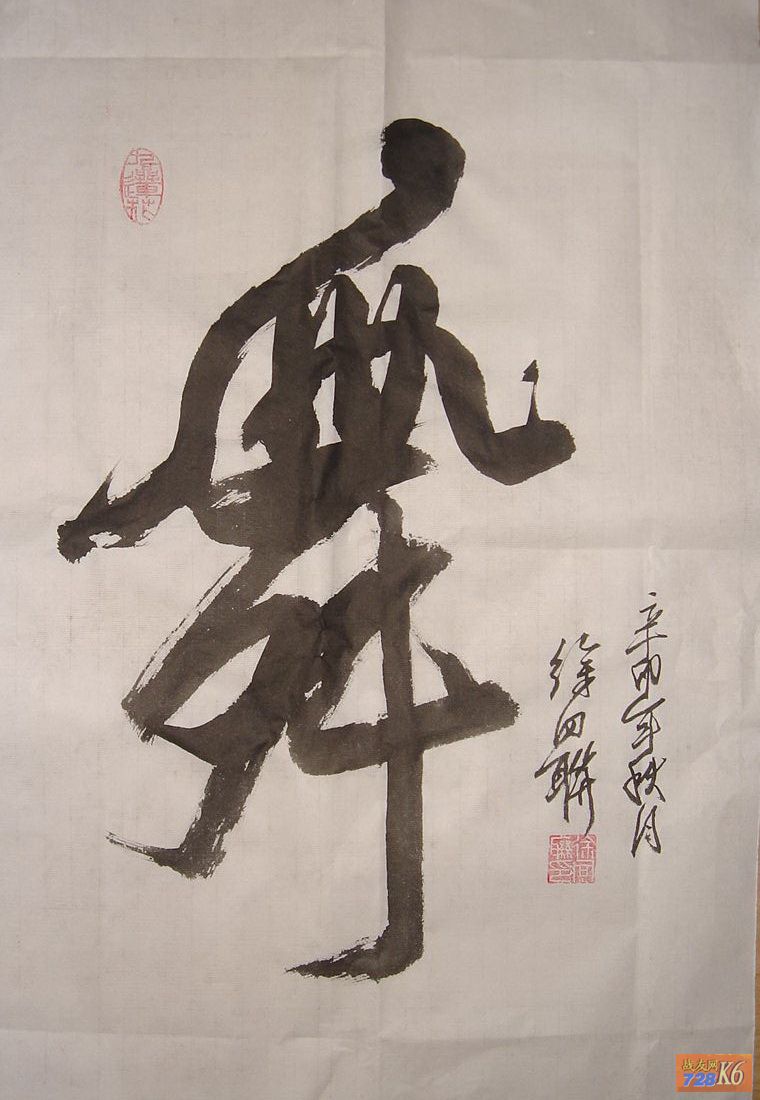 舞
辛卯年秋月
徐四联
战友网
728K6